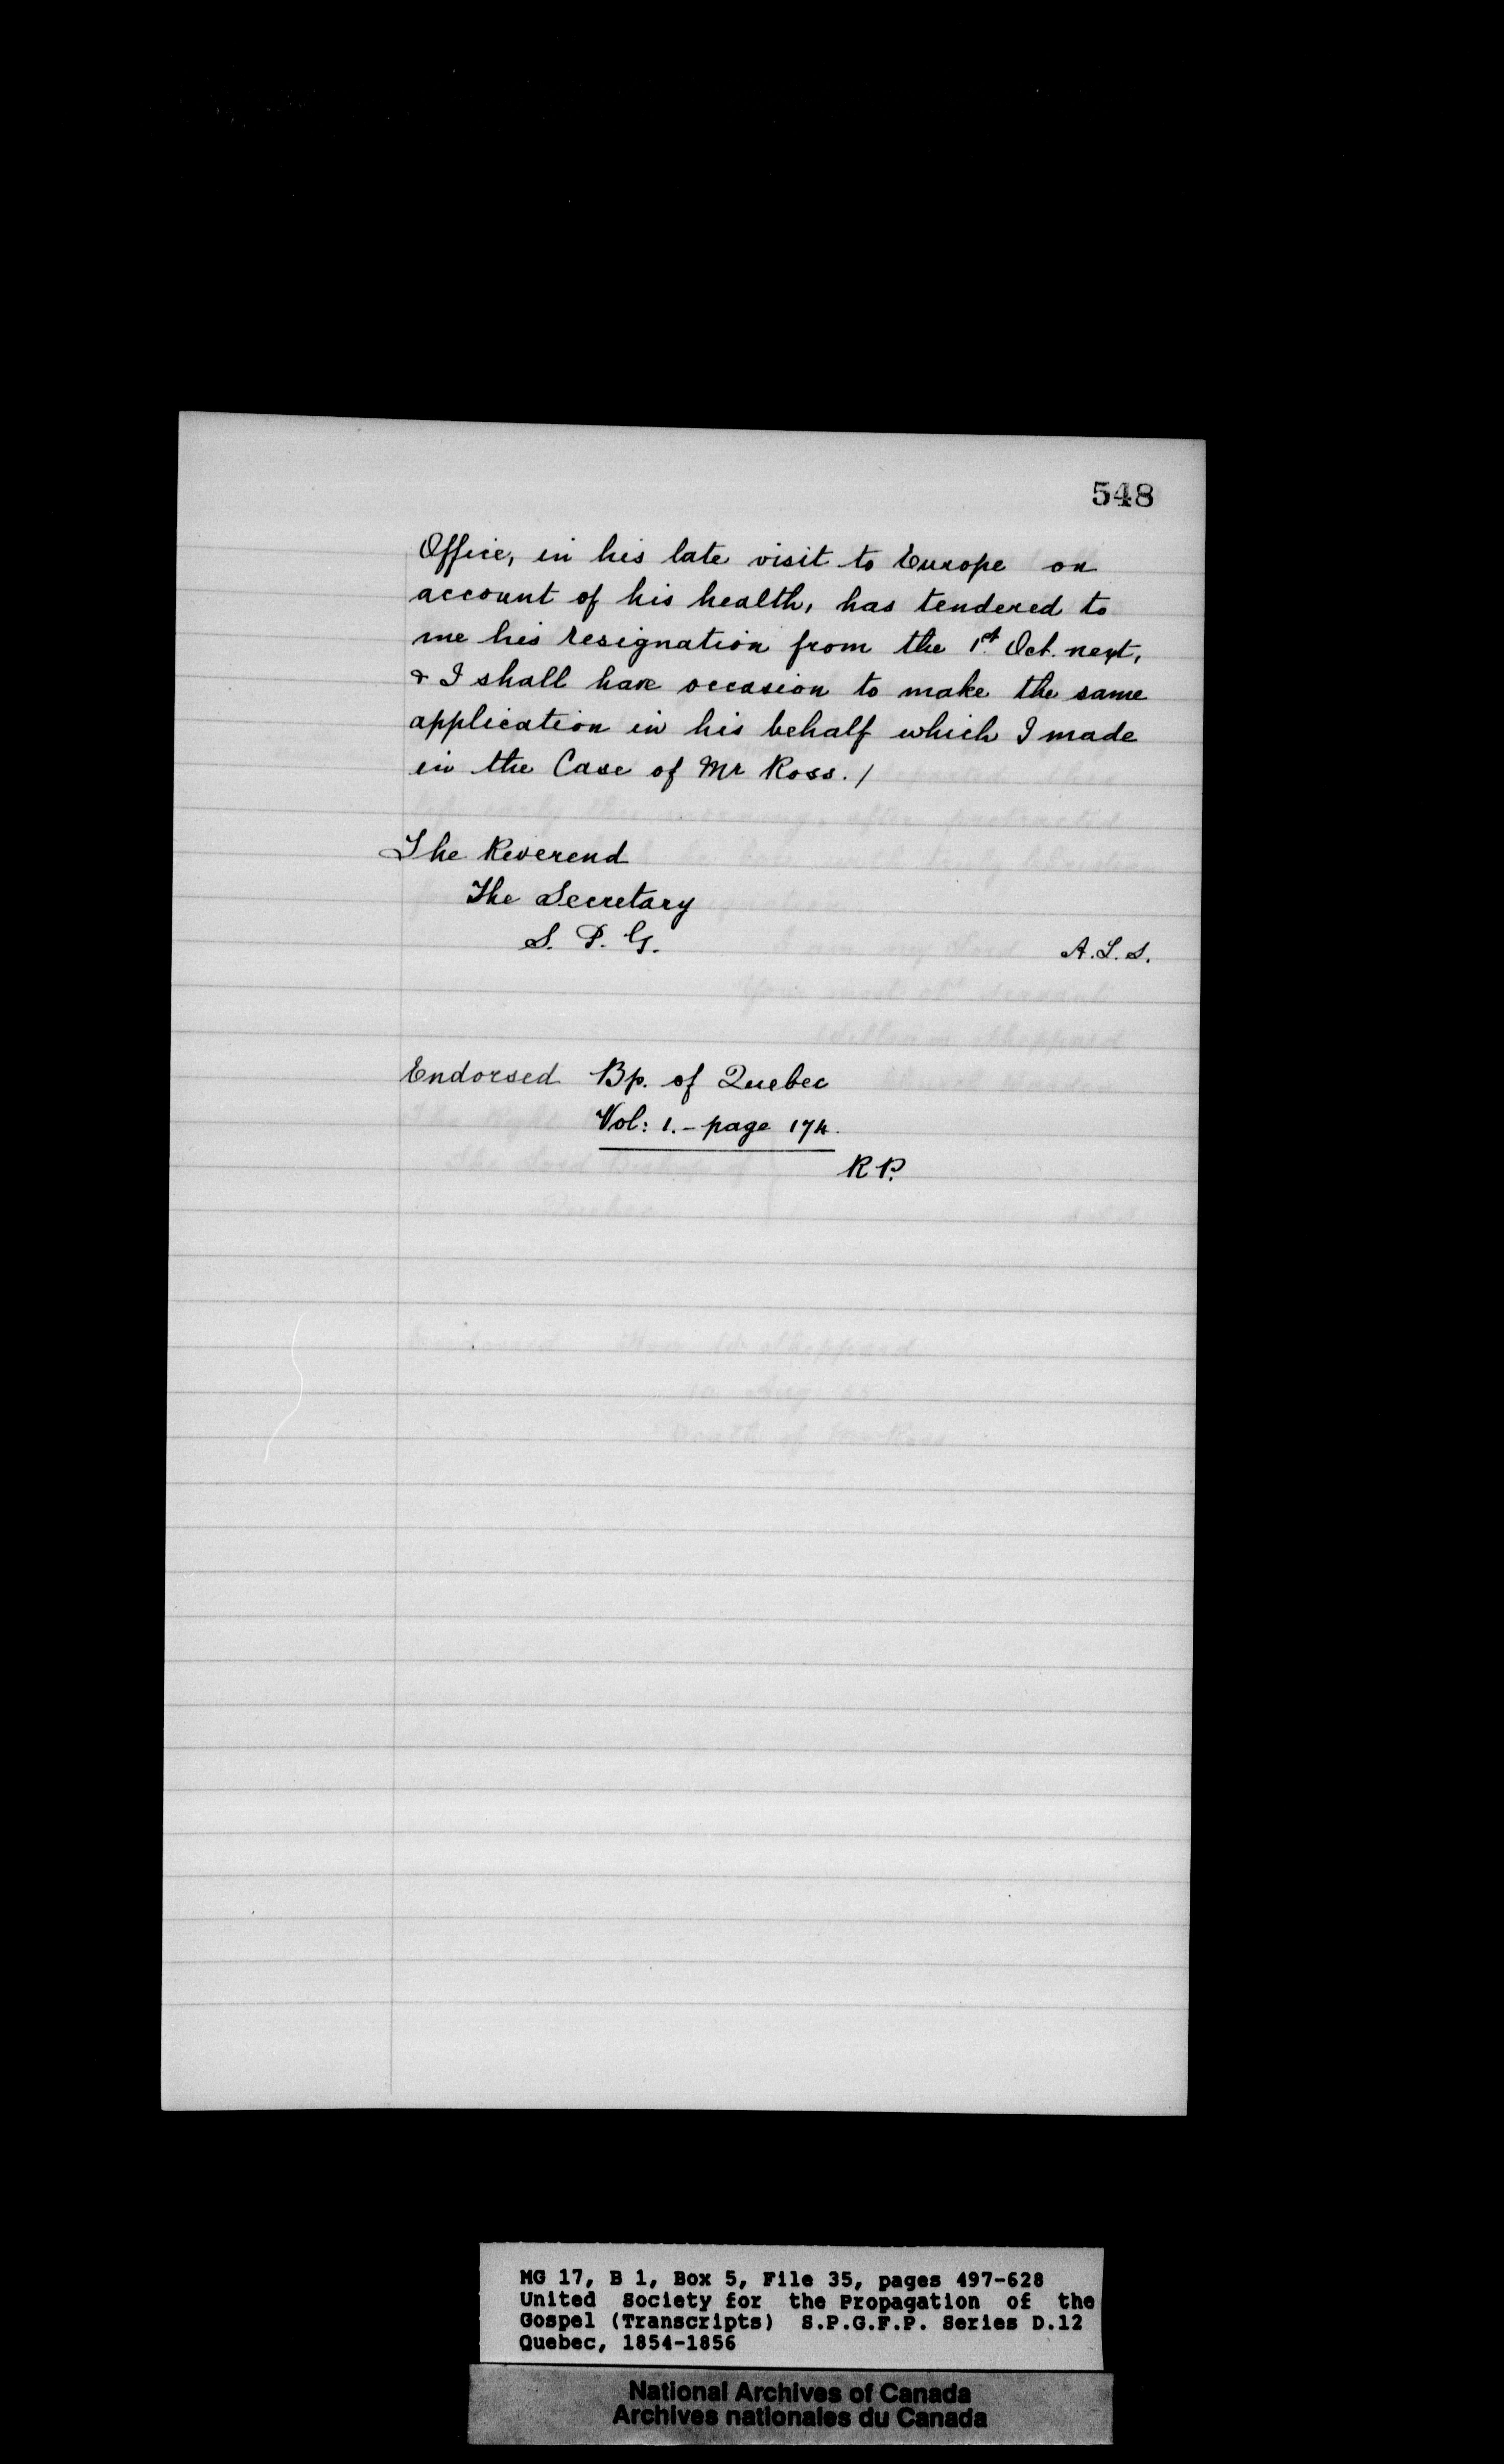 548
Office, in his late visit to Europe on
account of his health, has tendered to
me his resignation from the 1st Oct. next,
& I shall have occasion to make the same
application in his behalf which I made
in the Case of Mr Ross. /
The Reverend
The Secretary
S. P. G.
A.L.S.
Endorsed Bp. of Quebec
Vol: 1. - page 174.
R P.
MG 17, B 1, Box 5, File 35, pages 497-628
United Society for the Propagation of the
Gospel (Transcripts) S.P.G.F.P. Series D.12
Quebec, 1854-1856
National Archives of Canada
Archives nationales du Canada